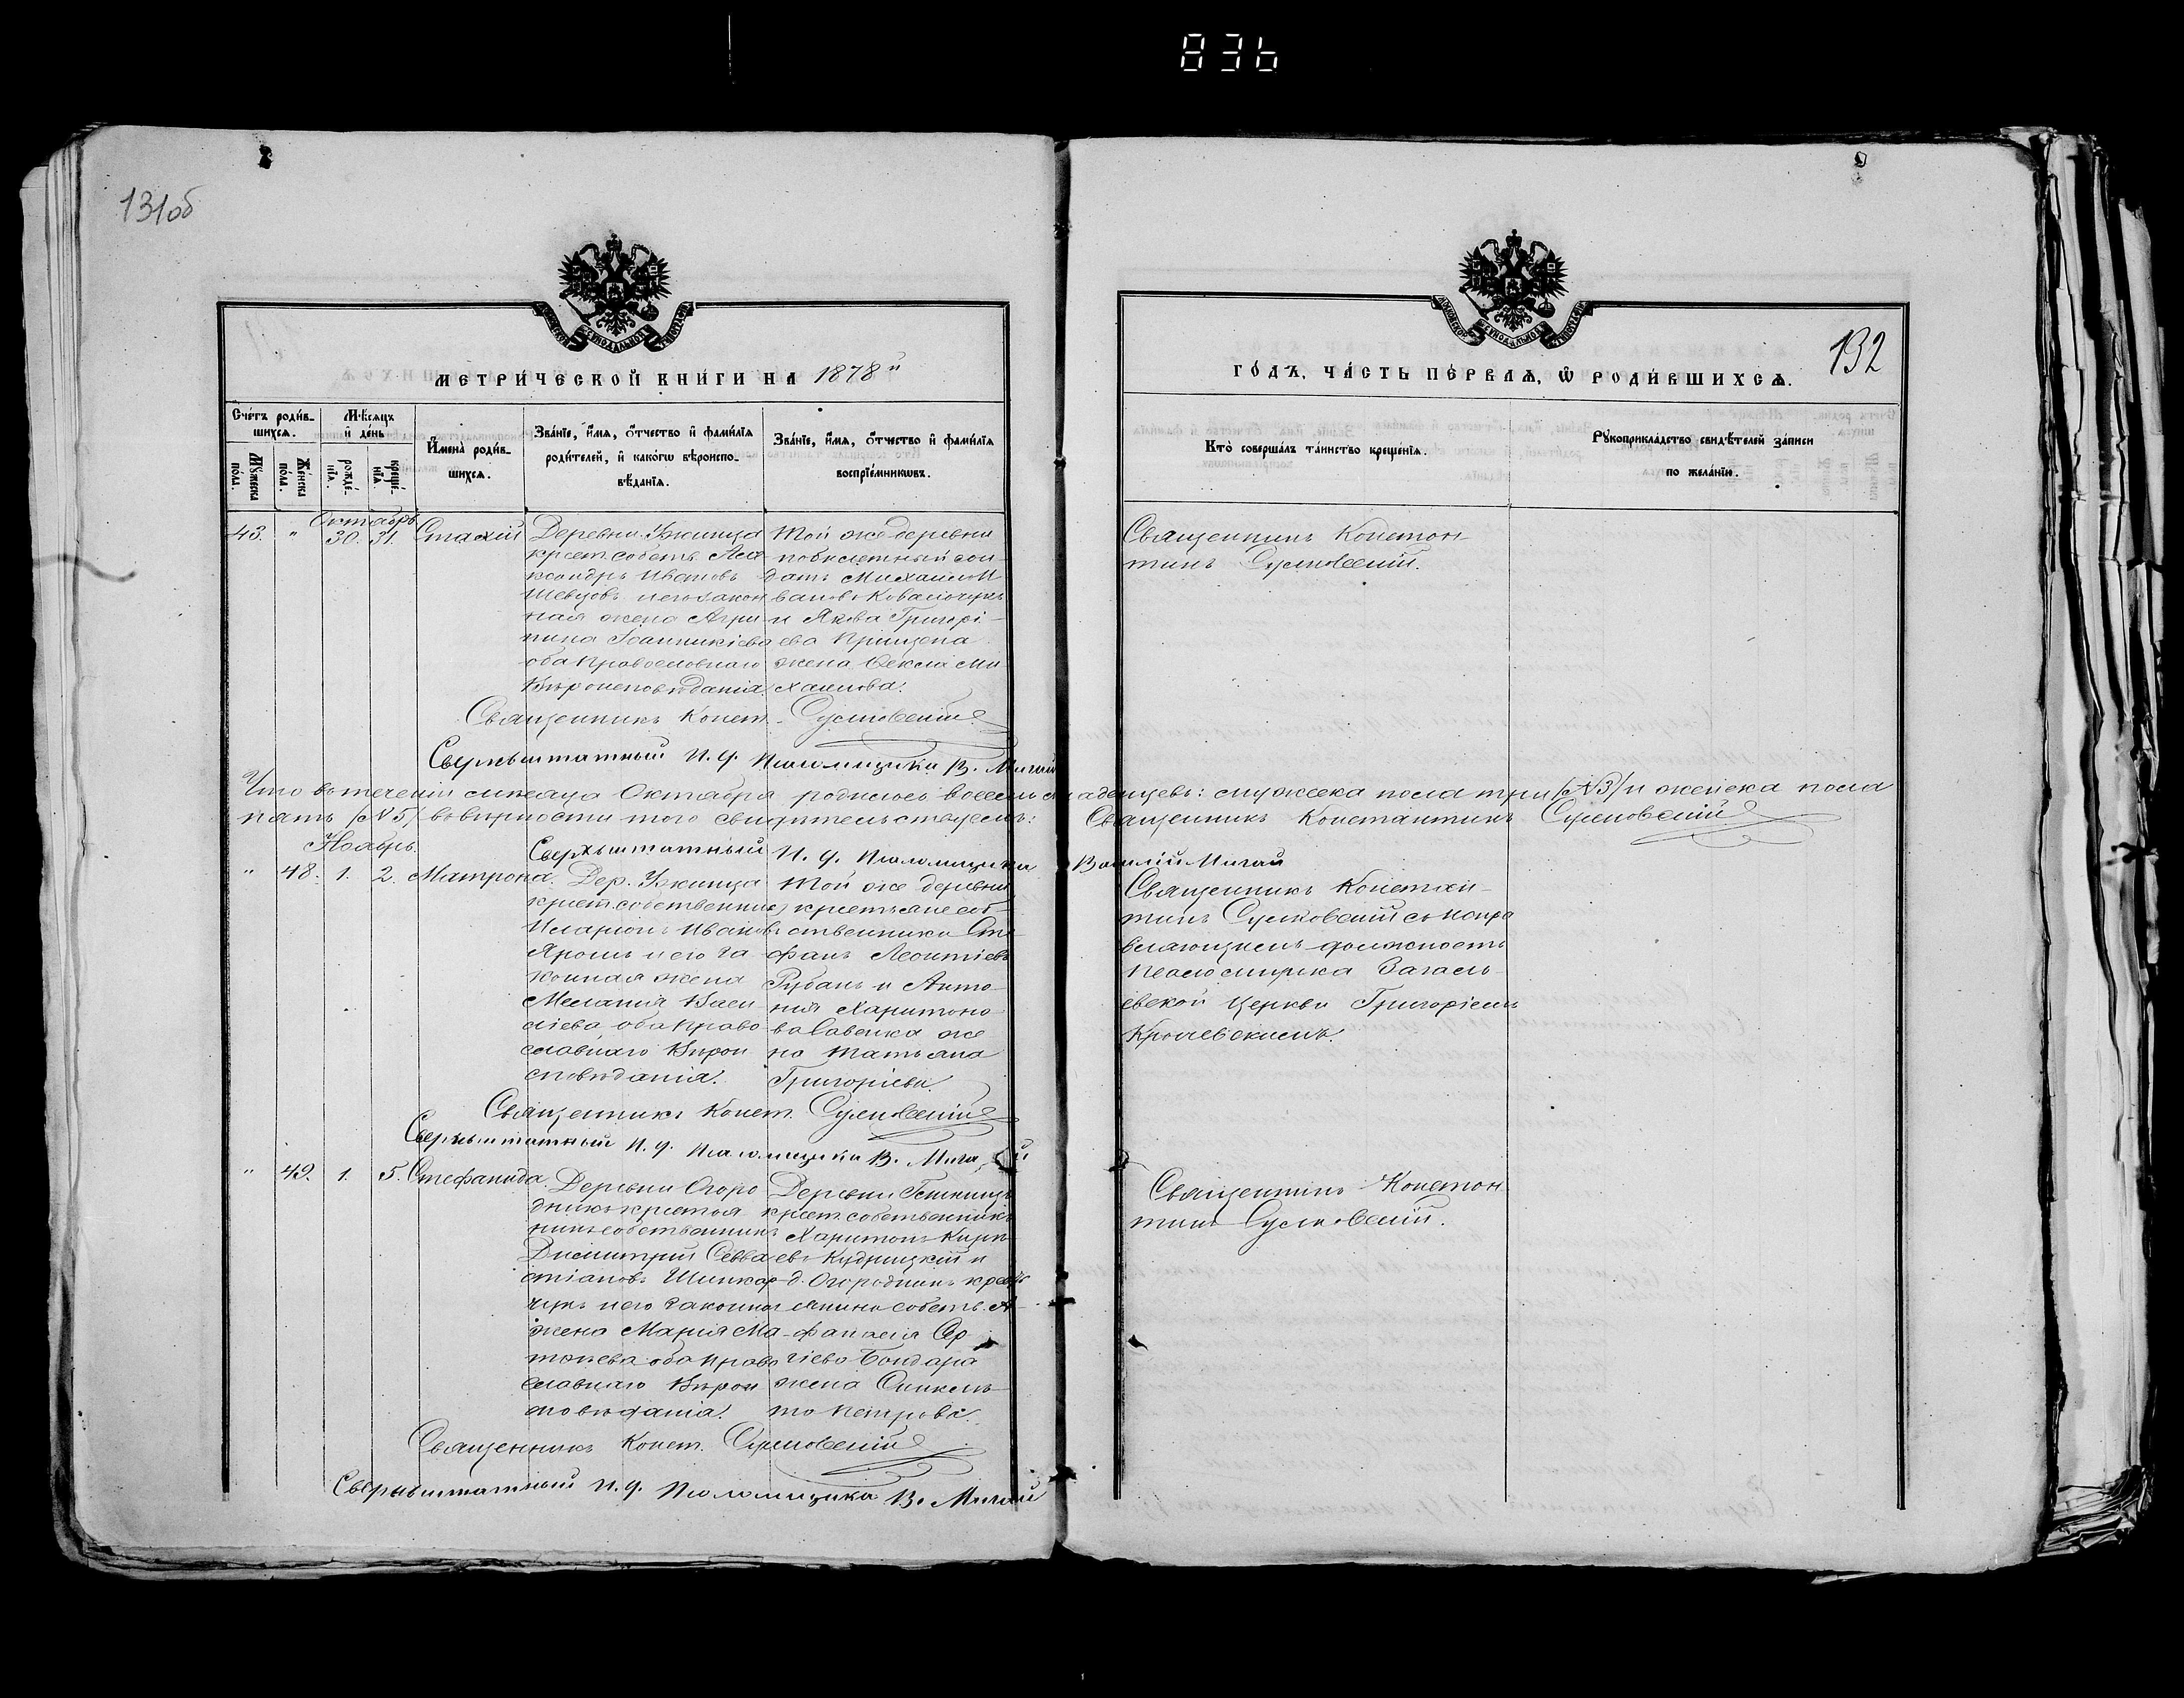 836
131об
МЕТРИ́ЧЕСКОЙ КНИ́ГИ НА 1878й
Сче́тъ роди́в-
шихсѧ.
Мѣ́сѧцъ
и҆ де́нь
Мꙋ́жеска
по́ла.
Же́нска
по́ла.
рожде́-
нїѧ.
креще́-
нїѧ.
И҆мена̀ роди́в-
шихсѧ.
Зва́нїе, и҆́мѧ, ѻ҆́тчество и҆ фами́лїѧ
роди́телей, и҆ како́гѡ вѣроиспо-
вѣ́данїѧ.
Зва́нїе, и҆́мѧ, ѻ҆́тчество и҆ фами́лїѧ
воспрїе́мникѡвъ.
Октябрь
43. " 30. 31. Стахій
Деревни Ужинца
крест. собств. Але
ксандръ Ивановъ
Шевцовъ и его закон
ная жена Агри
пина Іоанникіева
оба Православнаго
Вѣроисповѣданія.
Той же деревни
солдатъ Михаилъ И
вановъ Ковальчукъ
и Якова Григорі-
ева Прищепа
жена Векла Ми
хаилова.
Священникъ Конст. Сулковскій
Сверхштатный И. д. Псаломщика В. Мигай
Что въ теченіи мѣсяца Октября родилось восемь младенцевъ: мужеска пола три /N3/ и женска пола
пять /N5/ въ вѣрности того свидѣтельствуемъ: Священникъ Константинъ Сулковскій
Сверхштатный И. д. Псаломщика Василій Мигай
Ноябрь.
" 48. 1. 2. Матрона.
Дер. Ужинца
крест. собственникъ
Иларіонъ Ивановъ
Яромъ и его за
конная жена
Меланія Васи
ліева оба Право
славнаго Вѣрои
сповѣданія.
Той же деревни
крестьяне соб-
ственники Сте
фанъ Леонтіевъ
Рубанъ и Анто
нія Харитоно
ва Савенка же
на Татьяна
Григоріева.
Священникъ Конст. Сулковскій
Сверхштатный И. д. Псаломщика В. Мигай
" 49. 1. 5. Стефанида.
Деревни Огоро
дникъ крестья
нинъ собственникъ
Димитрій Севва
стіановъ Шинкар
чукъ и его законная
жена Марія Ма-
тѳеева оба Право
славнаго Вѣрои
сповѣданія.
Деревни
крест. собственникъ
Харитонъ Кирил
евъ Кудрицкій и
д. Огородникъ кресть
янина собств. А-
фанасія Сер
гіева Бондара
жена Оникея
Петрова.
Священникъ Конст. Сулковскій
Сверхштатный И. д. Псаломщика В. Мигай
132
ГО́ДЪ, ЧА́СТЬ ПЕ́РВАѦ, Ѡ҆ РОДИ́ВШИХСѦ.
Кто̀ соверша́лъ та́инство креще́нїѧ.
Рꙋкоприкла́дство свидѣ́телей за́писи
по жела́нїю.
Священникъ Констан-
тинъ Сулковскій.
Священникъ Констан-
тинъ Сулковскій съ испра
вляющимъ должность
Псаломщика Загаль-
евской церкви Григоріемъ
Кролевскимъ.
Священникъ Констан
тинъ Сулковскій.